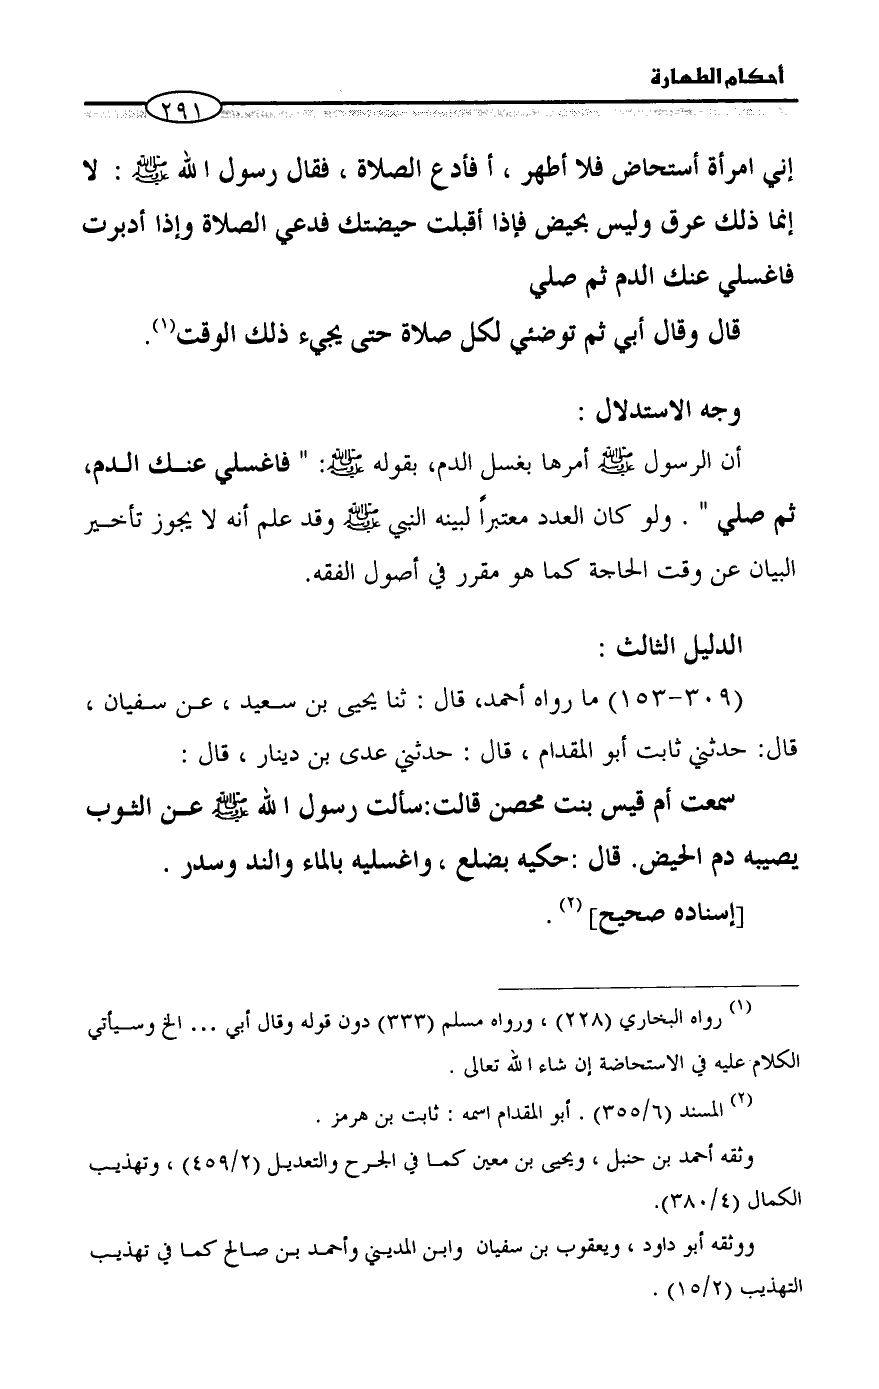 أحكام الطهارة
٢٩١
إني امرأة أستحاض فلا أطهر ، أ فأدع الصلاة ، فقال رسول الله ﷺ : لا
إنما ذلك عرق وليس بحيض فإذا أقبلت حيضتك فدعي الصلاة وإذا أدبرت
فاغسلي عنك الدم ثم صلي
قال وقال أبي ثم توضئي لكل صلاة حتى يجيء ذلك الوقت(١).
وجه الاستدلال :
أن الرسول ﷺ أمرها بغسل الدم، بقوله ﷺ: " فاغسلي عنك الدم،
ثم صلي " . ولو كان العدد معتبراً لبينه النبي ﷺ وقد علم أنه لا يجوز تأخير
البيان عن وقت الحاجة كما هو مقرر في أصول الفقه.
الدليل الثالث :
(٣٠٩-١٥٣) ما رواه أحمد، قال : ثنا يحيى بن سعيد ، عن سفيان ،
قال: حدثني ثابت أبو المقدام ، قال : حدثني عدى بن دينار ، قال :
سمعت أم قيس بنت محصن قالت:سألت رسول الله ﷺ عن الثوب
يصيبه دم الحيض. قال :حكيه بضلع ، واغسليه بالماء والند وسدر .
[إسناده صحيح] (٢) .
(١) رواه البخاري (٢٢٨) ، ورواه مسلم (٣٣٣) دون قوله وقال أبي ... الخ وسيأتي
الكلام عليه في الاستحاضة إن شاء الله تعالى .
(٢) المسند (٣٥٥/٦) . أبو المقدام اسمه : ثابت بن هرمز .
وثقه أحمد بن حنبل ، ويحيى بن معين كما في الجرح والتعديل (٤٥٩/٢) ، وتهذيب
الكمال (٣٨٠/٤).
ووثقه أبو داود ، ويعقوب بن سفيان وابن المديني وأحمد بن صالح كما في تهذيب
التهذيب (١٥/٢) .